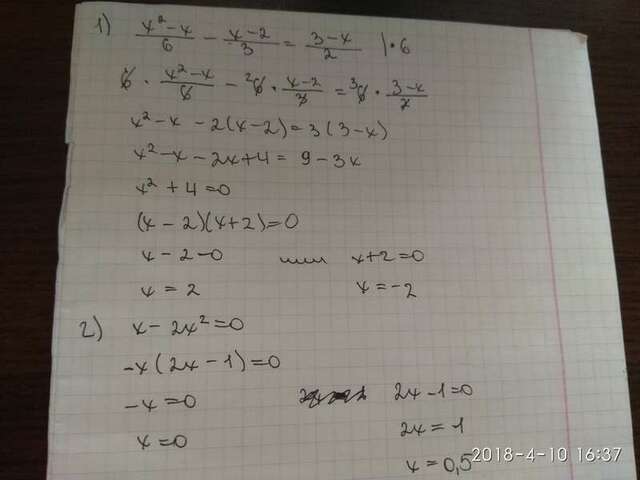 1) (x²-x)/6 - (x-2)/3 = (3-x)/2 |·6
6 · (x²-x)/6 - ²6 · (x-2)/3 = ³6 · (3-x)/2
x²-x - 2(x-2) = 3(3-x)
x²-x-2x+4 = 9-3x
x²+4=0
(x-2)(x+2)=0
x-2-0 или x+2=0
x=2 x=-2
2) x-2x²=0
-x(2x-1)=0
-x=0 2x-1=0
x=0 2x=1
x=0,5
2018-4-10 16:37